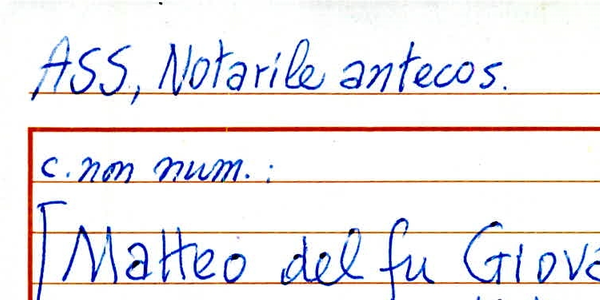 ASS, Notarile antecos.
c. non num. :
[Matteo del fu Giova